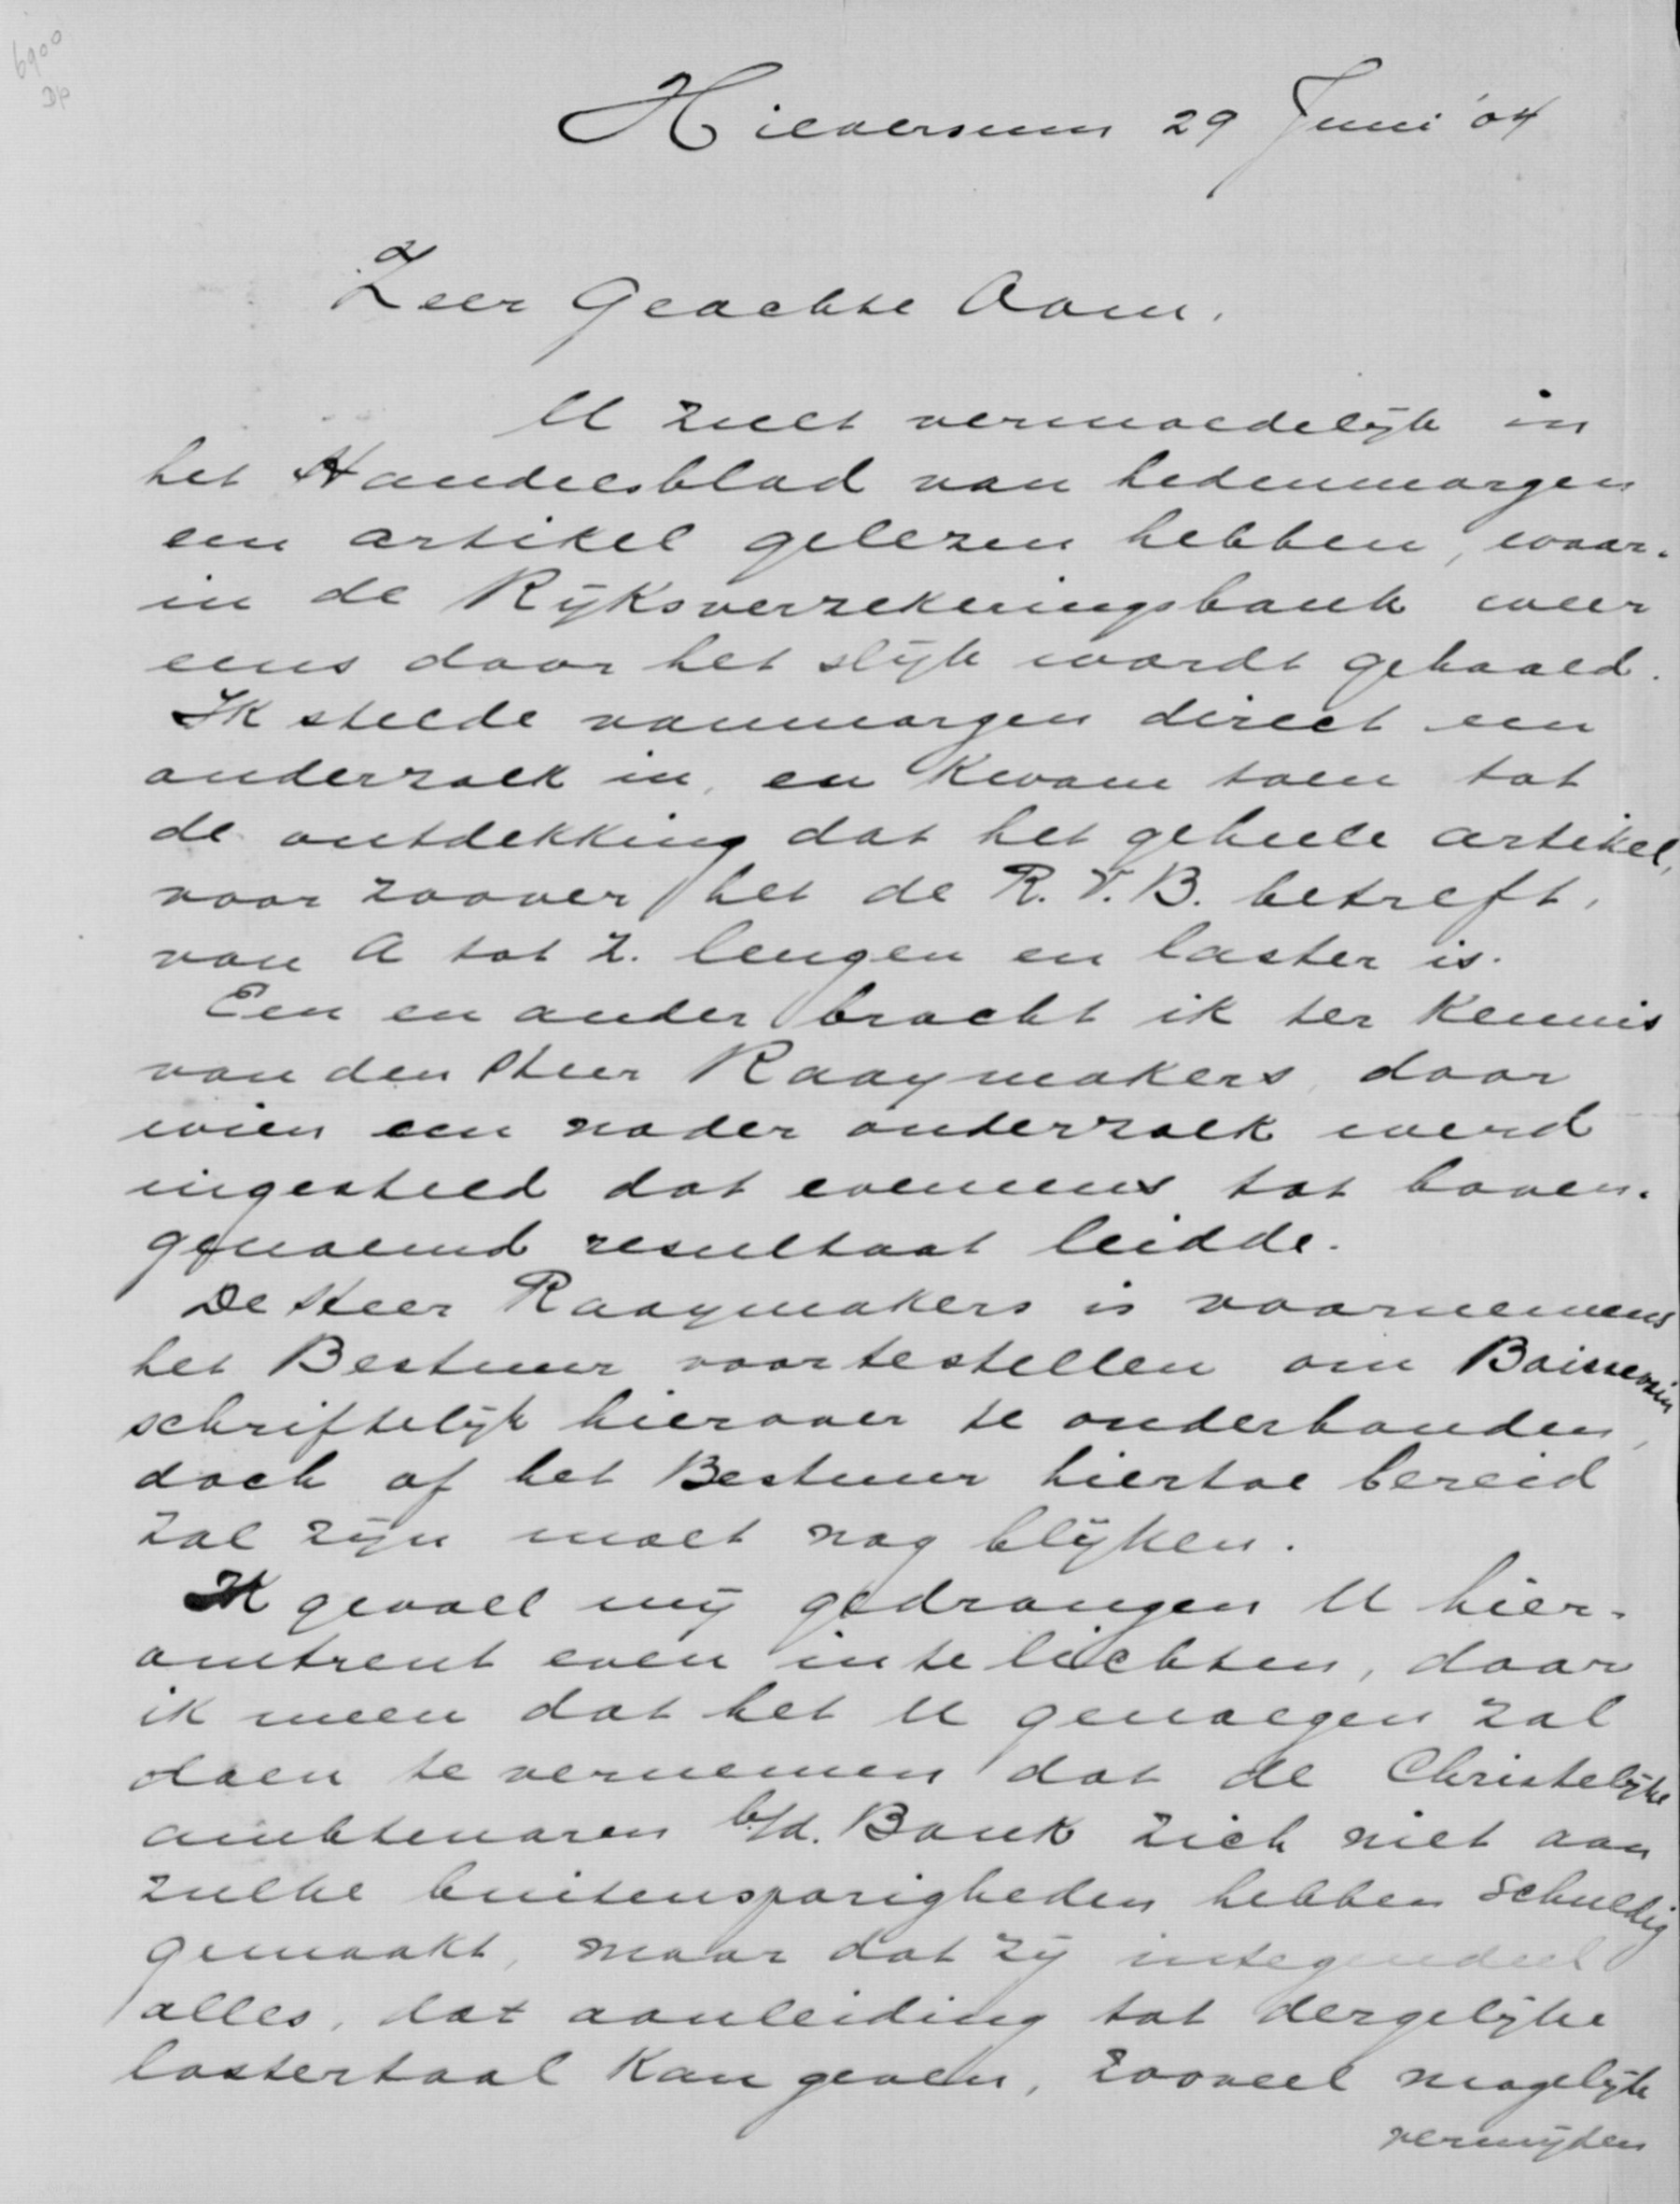 6900
DP
Hilversum 29 Juni '04
Zeer Geachte Oom,
U zult vermoedelijk in
het Handelsblad van hedenmorgen
een artikel gelezen hebben, waar-
in de Rijksverzekeringsbank weer
eens door het slijk wordt gehaald.
Ik stelde vanmorgen direct een
onderzoek in, en kwam toen tot
de ontdekking dat het geheele artikel,
voor zoover het de R.V.B. betreft,
van A tot Z. leugen en laster is.
Een en ander bracht ik ter kennis
van den Heer Raaymakers, door
wien een nader onderzoek werd
ingesteld dat eveneens tot boven-
genoemd resultaat leidde.
De Heer Raaymakers is voornemens
het Bestuur voortestellen om Boissevain
schriftelijk hierover te onderhouden,
doch of het Bestuur hiertoe bereid
zal zijn moet nog blijken.
Ik gevoel mij gedrongen U hier-
omtrent even intelichten, daar
ik meen dat het U genoegen zal
doen te vernemen dat de Christelijke
ambtenaren b/d. Bank zich niet aan
zulke buitensporigheden hebben schuldig
gemaakt, maar dat zij integendeel
alles, dat aanleiding tot dergelijke
lastertaal kan geven, zooveel mogelijk
vermijden